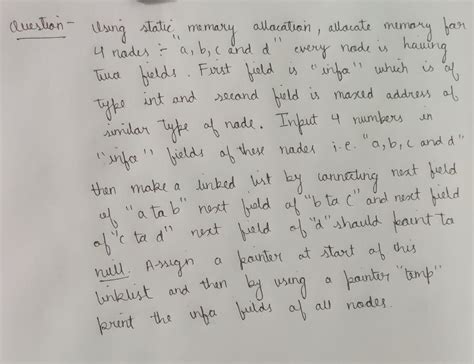 Question - Using static memory allocation, allocate memory for
4 nodes :- "a, b, c and d" every node is having
two fields. First field is "info" which is of
type int and second field is maxed address of
similar type of node. Input 4 numbers in
"info" fields of these nodes i.e. "a, b, c and d"
then make a linked list by connecting next field
of "a to b" next field of "b to c" and next field
of "c to d" next field of "d" should point to
null. Assign a pointer at start of this
linklist and then by using a pointer "temp"
print the info fields of all nodes.